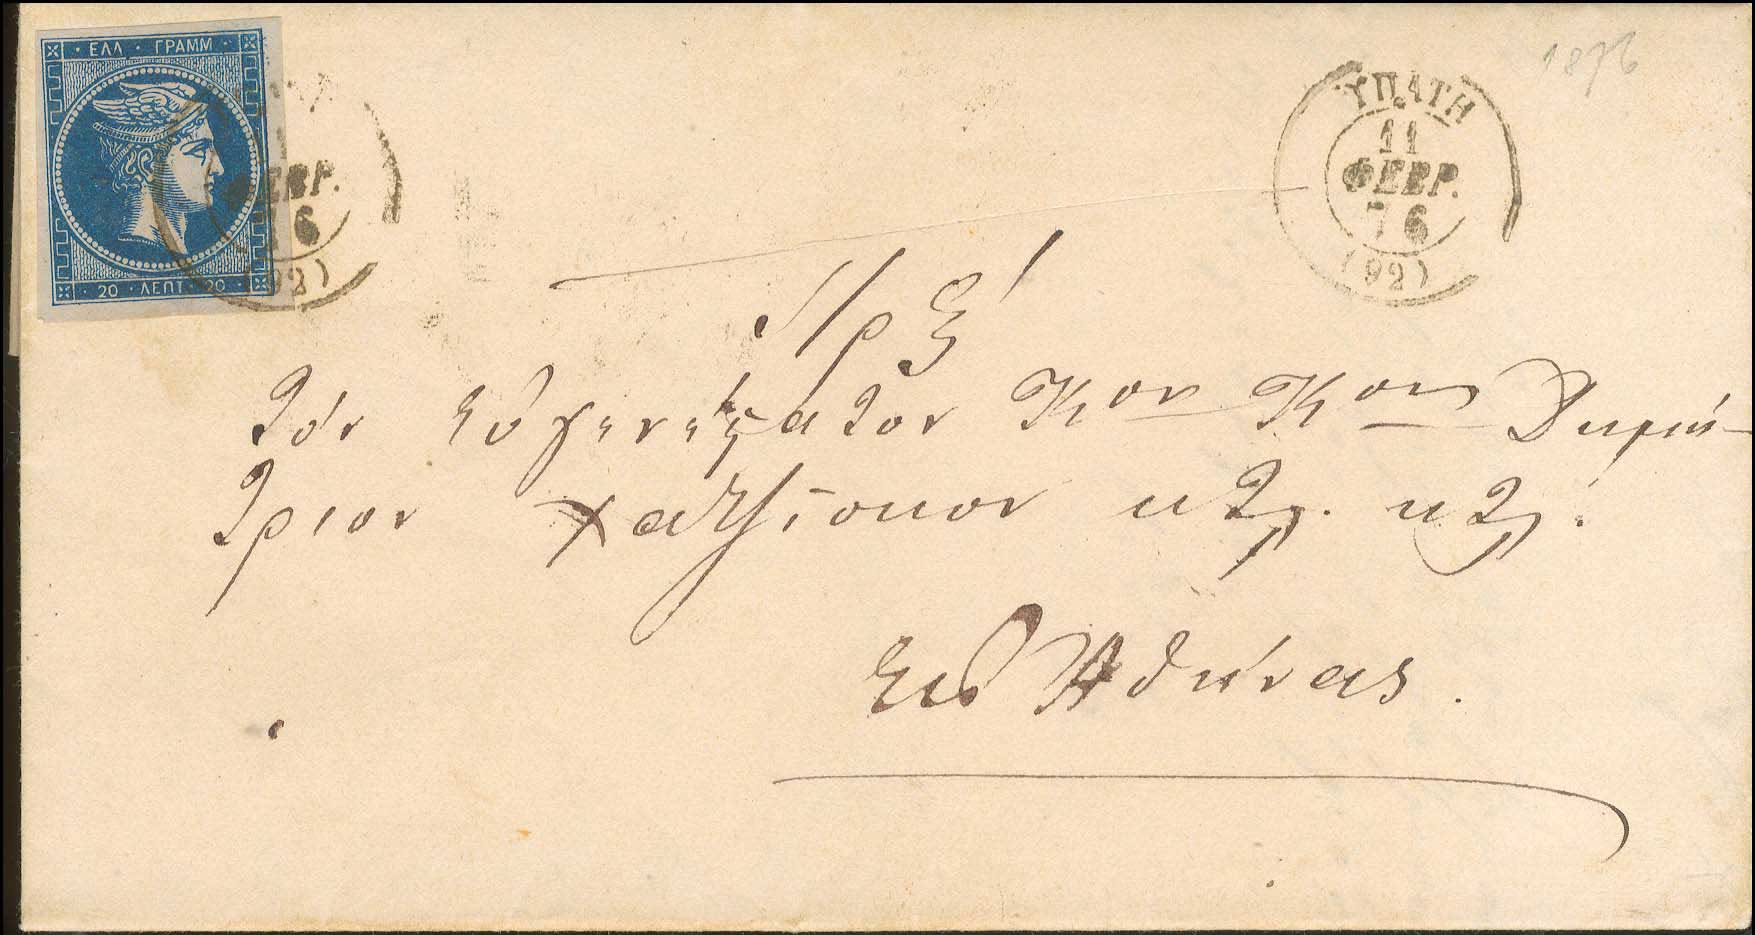 · ΕΛΛ · ΓΡΑΜΜ ·
· 20 · ΛΕΠΤ · 20 ·
ΦΕΒΡ.
76
(92)
ΥΠΑΤΗ
11
ΦΕΒΡ.
76
(92)
1876
Τὸν εὐγενέστατον Κον Κον Δημή-
τριον Χατζίσκον κτλ. κτλ.
εἰς Ἀθήνας.